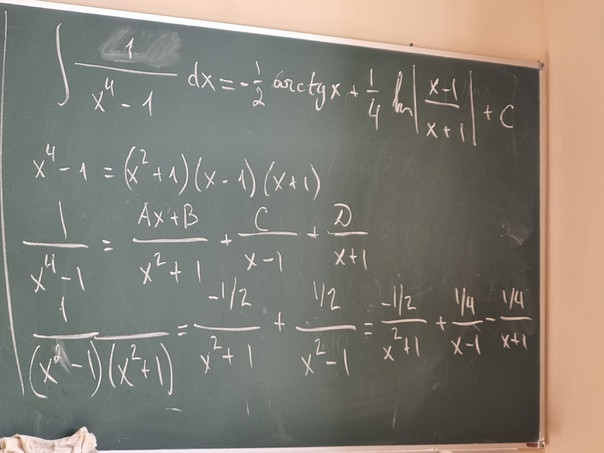 ∫ 1/(x⁴ - 1) dx = -1/2 arctgx + 1/4 ln|(x-1)/(x+1)| + C
x⁴ - 1 = (x² + 1)(x - 1)(x + 1)
1/(x⁴ - 1) = (Ax + B)/(x² + 1) + C/(x - 1) + D/(x + 1)
1/((x² - 1)(x² + 1)) = (-1/2)/(x² + 1) + (1/2)/(x² - 1) = (-1/2)/(x² + 1) + (1/4)/(x - 1) - (1/4)/(x + 1)